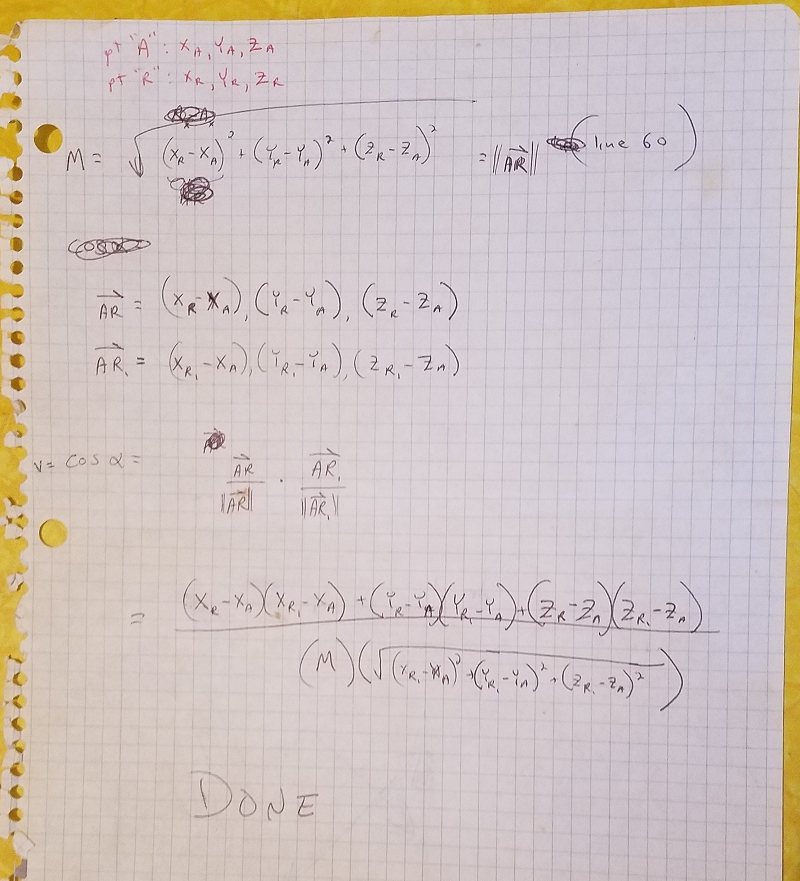 pt "A": X_A, Y_A, Z_A
pt "R": X_R, Y_R, Z_R
M = √(X_R - X_A)² + (Y_R - Y_A)² + (Z_R - Z_A)² = ||AR|| (line 60)
AR = (X_R - X_A), (Y_R - Y_A), (Z_R - Z_A)
AR₁ = (X_R₁ - X_A), (Y_R₁ - Y_A), (Z_R₁ - Z_A)
V = cos α = AR / ||AR|| · AR₁ / ||AR₁||
= (X_R - X_A)(X_R₁ - X_A) + (Y_R - Y_A)(Y_R₁ - Y_A) + (Z_R - Z_A)(Z_R₁ - Z_A)
(M)(√(X_R₁ - X_A)² + (Y_R₁ - Y_A)² + (Z_R₁ - Z_A)²)
DONE